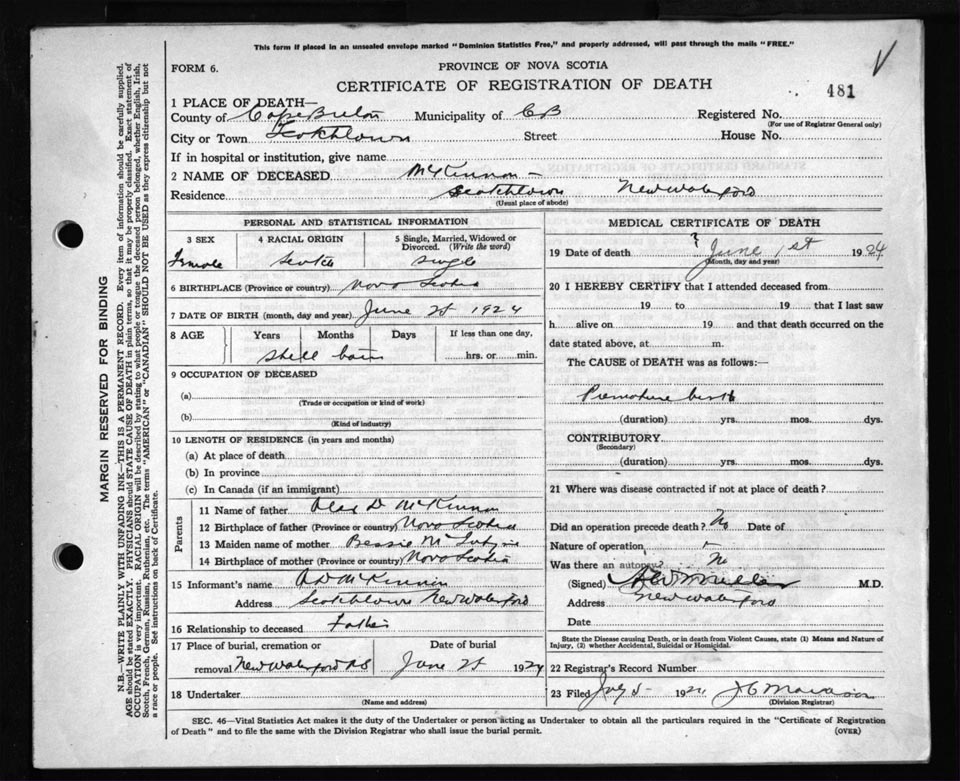 This form if placed in an unsealed envelope marked "Dominion Statistics Free," and properly addressed, will pass through the mails "FREE."
FORM 6.
PROVINCE OF NOVA SCOTIA
CERTIFICATE OF REGISTRATION OF DEATH
481
1 PLACE OF DEATH—
County of Cape Breton Municipality of CB Registered No.
(For use of Registrar General only)
City or Town Scotchtown Street House No.
If in hospital or institution, give name
2 NAME OF DECEASED McKinnon —
Residence Scotchtown New Waterford
(Usual place of abode)
PERSONAL AND STATISTICAL INFORMATION
3 SEX
Female
4 RACIAL ORIGIN
Scotch
5 Single, Married, Widowed or Divorced. (Write the word)
single
6 BIRTHPLACE (Province or country) Nova Scotia
7 DATE OF BIRTH (month, day and year) June 1924
8 AGE Years Months Days If less than one day,
still born hrs. or min.
9 OCCUPATION OF DECEASED
(a)
(Trade or occupation or kind of work)
(b)
(Kind of industry)
10 LENGTH OF RESIDENCE (in years and months)
(a) At place of death
(b) In province
(c) In Canada (if an immigrant)
Parents
11 Name of father Alex D McKinnon
12 Birthplace of father (Province or country) Nova Scotia
13 Maiden name of mother Bessie
14 Birthplace of mother (Province or country) Nova Scotia
15 Informant's name A D McKinnon
Address Scotchtown New Waterford
16 Relationship to deceased Father
17 Place of burial, cremation or Date of burial
removal New Waterford NS June 1924
18 Undertaker
(Name and address)
MEDICAL CERTIFICATE OF DEATH
19 Date of death June 1st 1924
(Month, day and year)
20 I HEREBY CERTIFY that I attended deceased from
19 to 19 that I last saw
h alive on 19 and that death occurred on the
date stated above, at m.
The CAUSE of DEATH was as follows:—
Premature birth
(duration) yrs. mos. dys.
CONTRIBUTORY
(Secondary)
(duration) yrs. mos. dys.
21 Where was disease contracted if not at place of death?
Did an operation precede death? No Date of
Nature of operation
Was there an autopsy? No
(Signed) Miller M.D.
Address New Waterford
Date
State the Disease causing Death, or in death from Violent Causes, state (1) Means and Nature of
Injury, (2) whether Accidental, Suicidal or Homicidal.
22 Registrar's Record Number
23 Filed 1924
(Division Registrar)
SEC. 46—Vital Statistics Act makes it the duty of the Undertaker or person acting as Undertaker to obtain all the particulars required in the "Certificate of Registration
of Death" and to file the same with the Division Registrar who shall issue the burial permit.
(OVER)
MARGIN RESERVED FOR BINDING
N.B.—WRITE PLAINLY WITH UNFADING INK—THIS IS A PERMANENT RECORD. Every item of information should be carefully supplied.
AGE should be stated EXACTLY. PHYSICIANS should STATE CAUSE OF DEATH in plain terms, so that it may be properly classified. Exact statement of
OCCUPATION is very important. RACIAL ORIGIN will be described by stating to what people or tongue the deceased person belonged, whether English, Irish,
Scotch, French, German, Russian, Ruthenian, etc. The terms "AMERICAN" or "CANADIAN" SHOULD NOT BE USED as they express citizenship but not
a race or people. See instructions on back of Certificate.